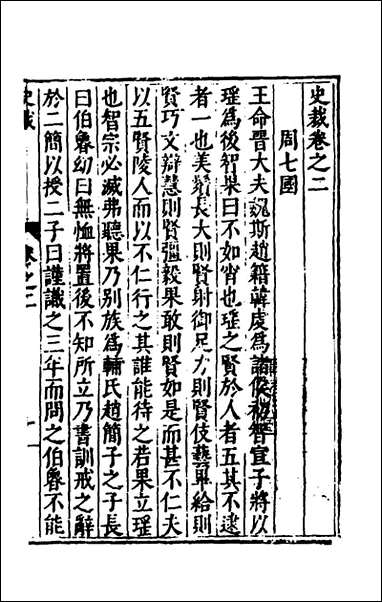 史裁卷之二
周七國
王命晉大夫魏斯趙籍韓虔為諸侯初智宣子將以
瑤為後智果曰不如宵也瑤之賢於人者五其不逮
者一也美鬚長大則賢射御足力則賢伎藝畢給則
賢巧文辯慧則賢彊毅果敢則賢如是而甚不仁夫
以五賢陵人而以不仁行之其誰能待之若果立瑤
也智宗必滅弗聽果乃別族為輔氏趙簡子之子長
曰伯魯幼曰無恤將置後不知所立乃書訓戒之辭
於二簡以授二子曰謹識之三年而問之伯魯不能
史裁
卷之二
一